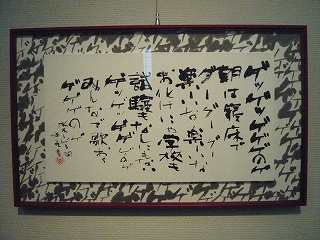 ゲゲゲのゲ
朝は寝床で
グーグーグー
楽しいな楽しいな
おばけにゃ学校も
試験もなんにもない
ゲゲゲゲゲのゲ
みんなで歌おう
ゲゲゲのゲ